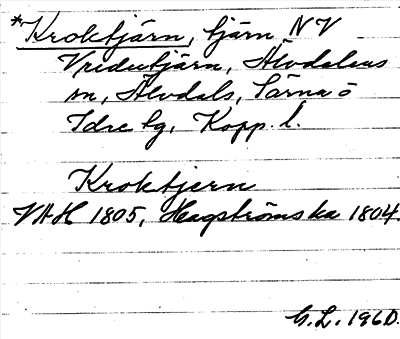 *Kroktjärn, tjärn NV
Vridutjärn, Älvdalens
sn, Älvdals, Särna ö
Idre tg, Kopp. l.
Kroktjern
VAH 1805, Hagströmska 1804.
G.L. 1960.